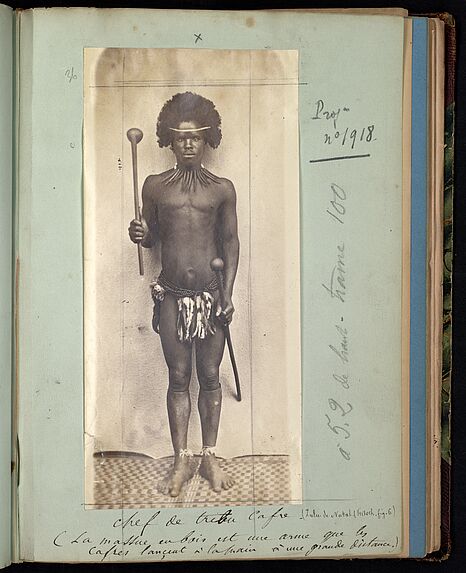 x
Proj^on
n° 1918.
à 5.2 de haut - trame 100
chef de tribu Cafre (Zulu de Natal (
( La massue en bois est une arme que les
Cafres lancent à la main à une grande distance.)